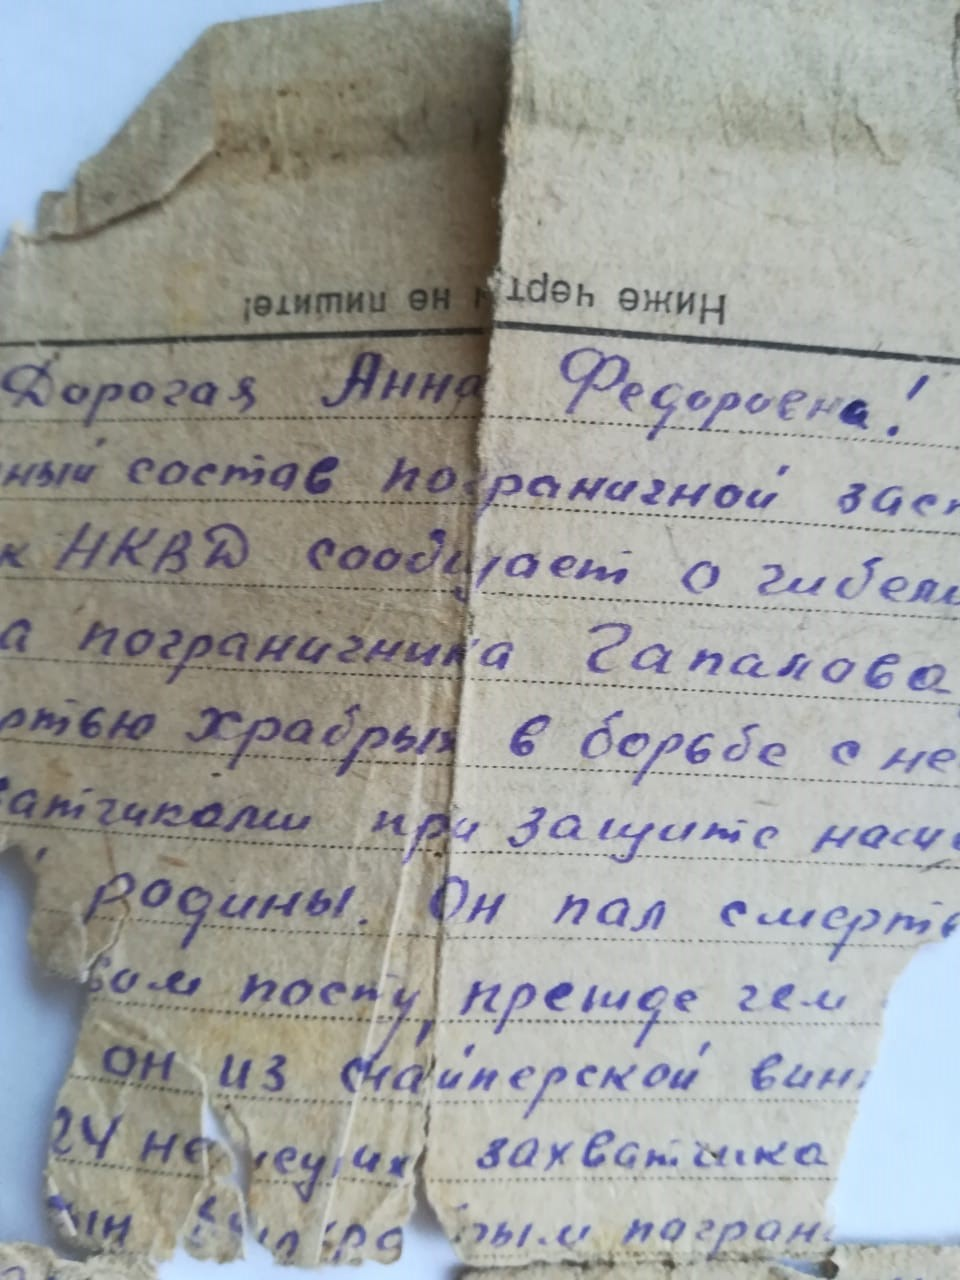 Ниже черты не пишите!
Дорогая Анна Федоровна!
ный состав пограничной заст
к НКВД сообщает о гибели
а пограничника Гапанова
ртью храбрых в борьбе с не
ватчиками при защите наш
родины. Он пал смерть
вом посту, прежде чем
он из снайперской вин
24 не захватчика
ын был храбрым пагран